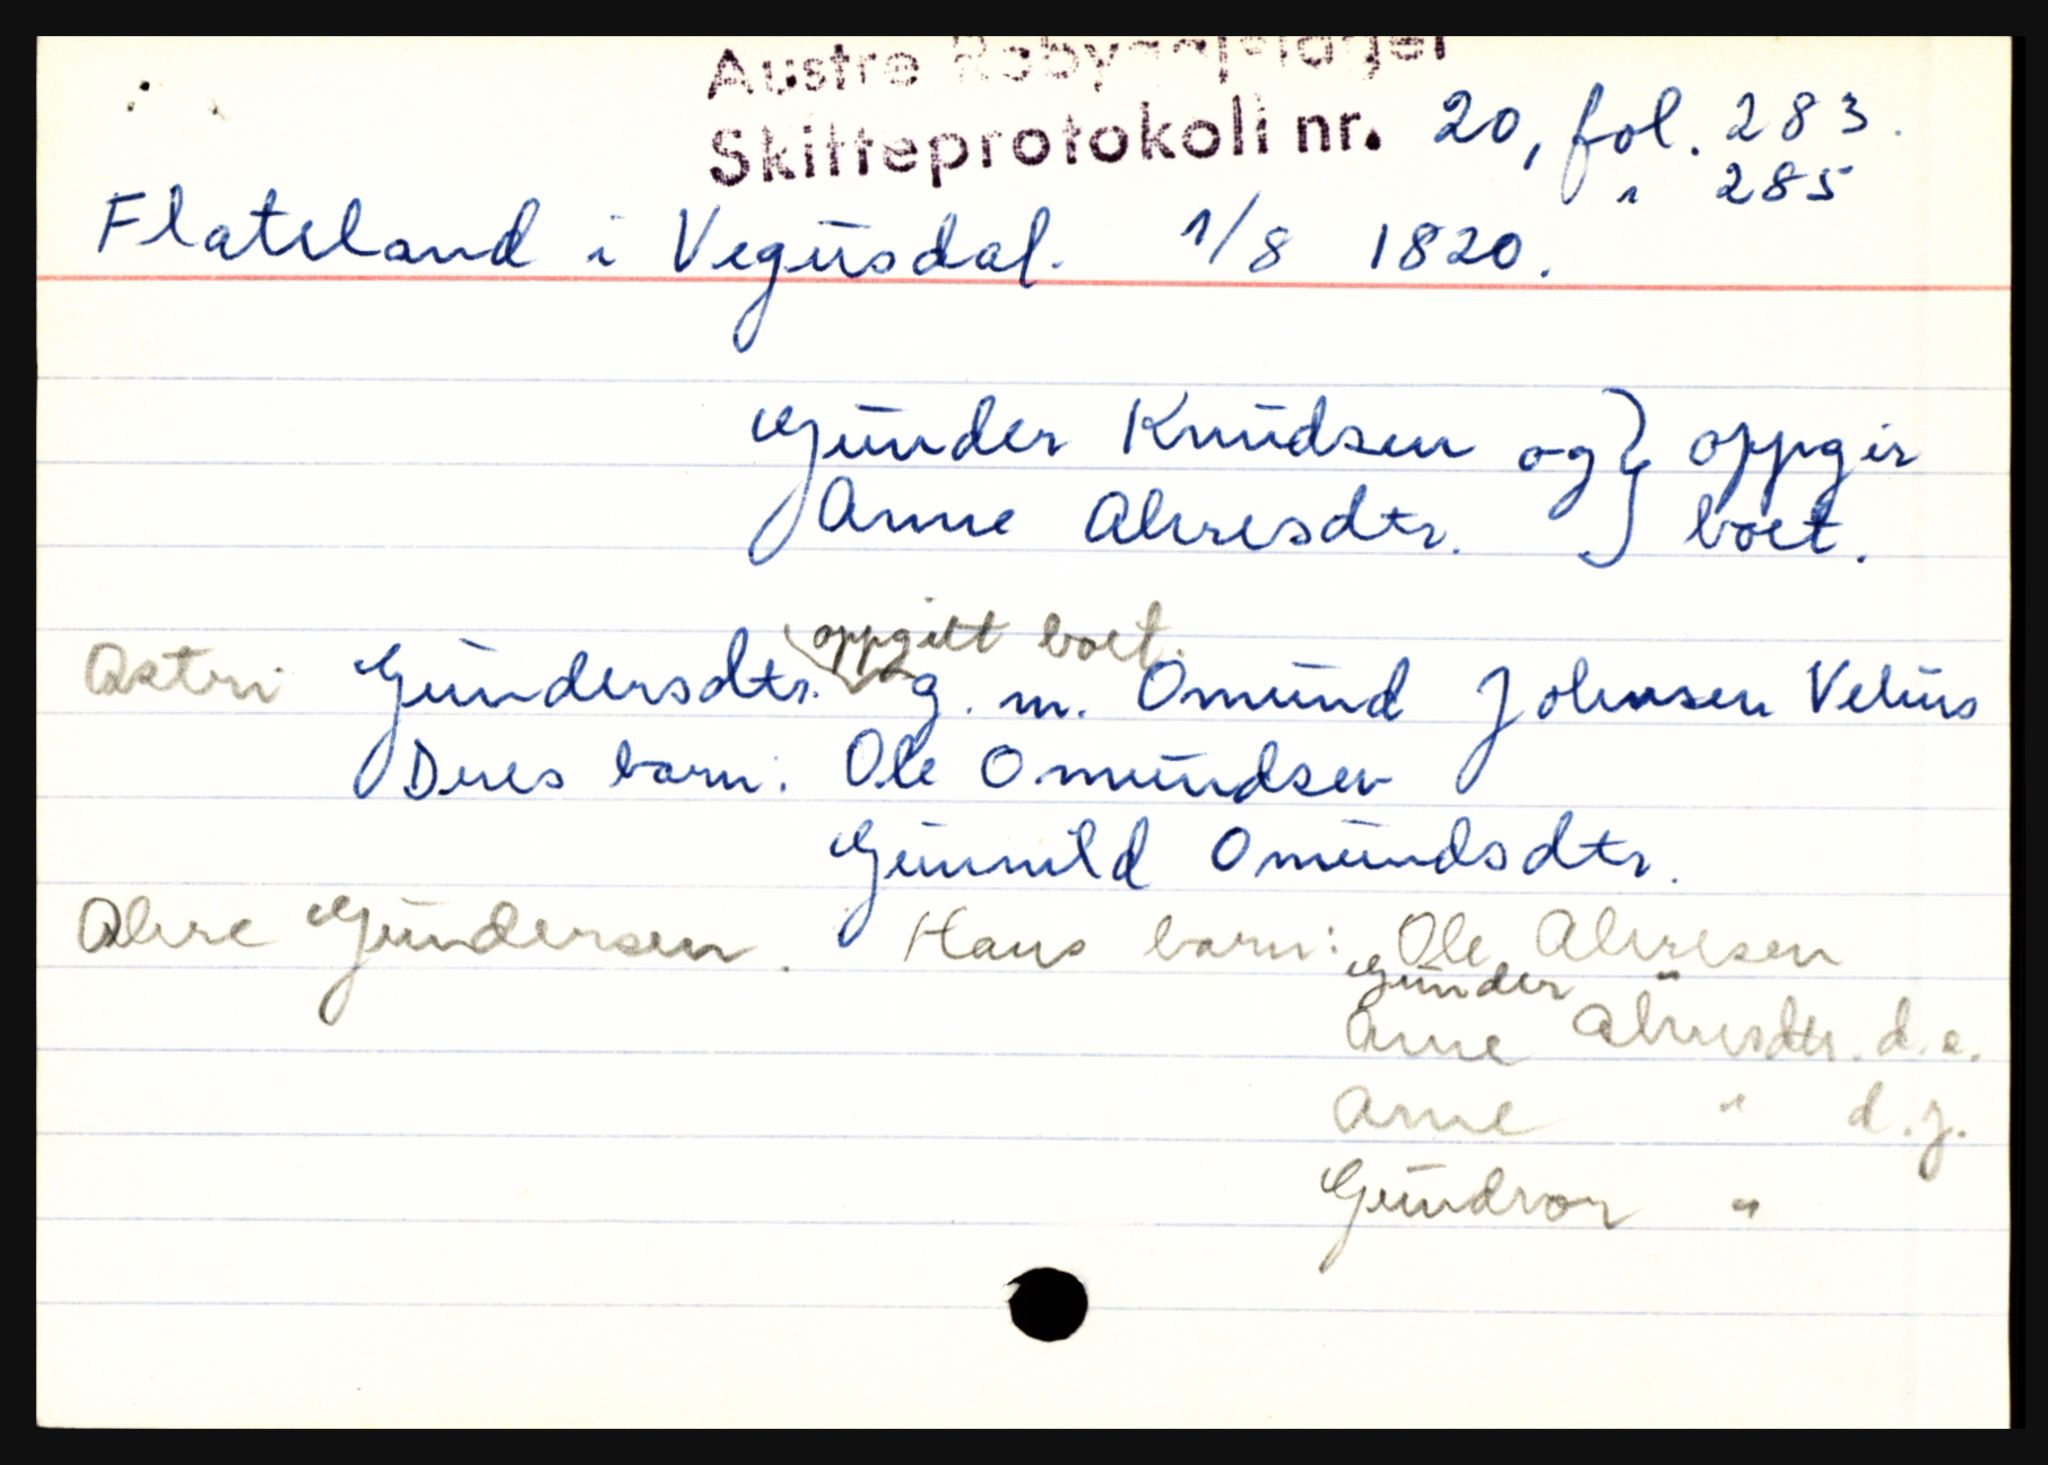 Austre Råbyggjelaget
Skifteprotokoll nr. 20, fol. 283.
" 285
Flateland i Vegusdal. 1/8 1820.
Gunder Knudsen og } oppgir
Anne Alvesdtr. } boet.
oppgitt boet.
Astri Gundersdtr. g. m. Omund Johnsen Vehus
Deres barn: Ole Omundsen
Gunnild Omundsdtr.
Alve Gundersen. Hans barn: Ole Alvesen
Gunder "
Anne Alvesdtr. d.e.
Anne " d.y.
Gundvor "